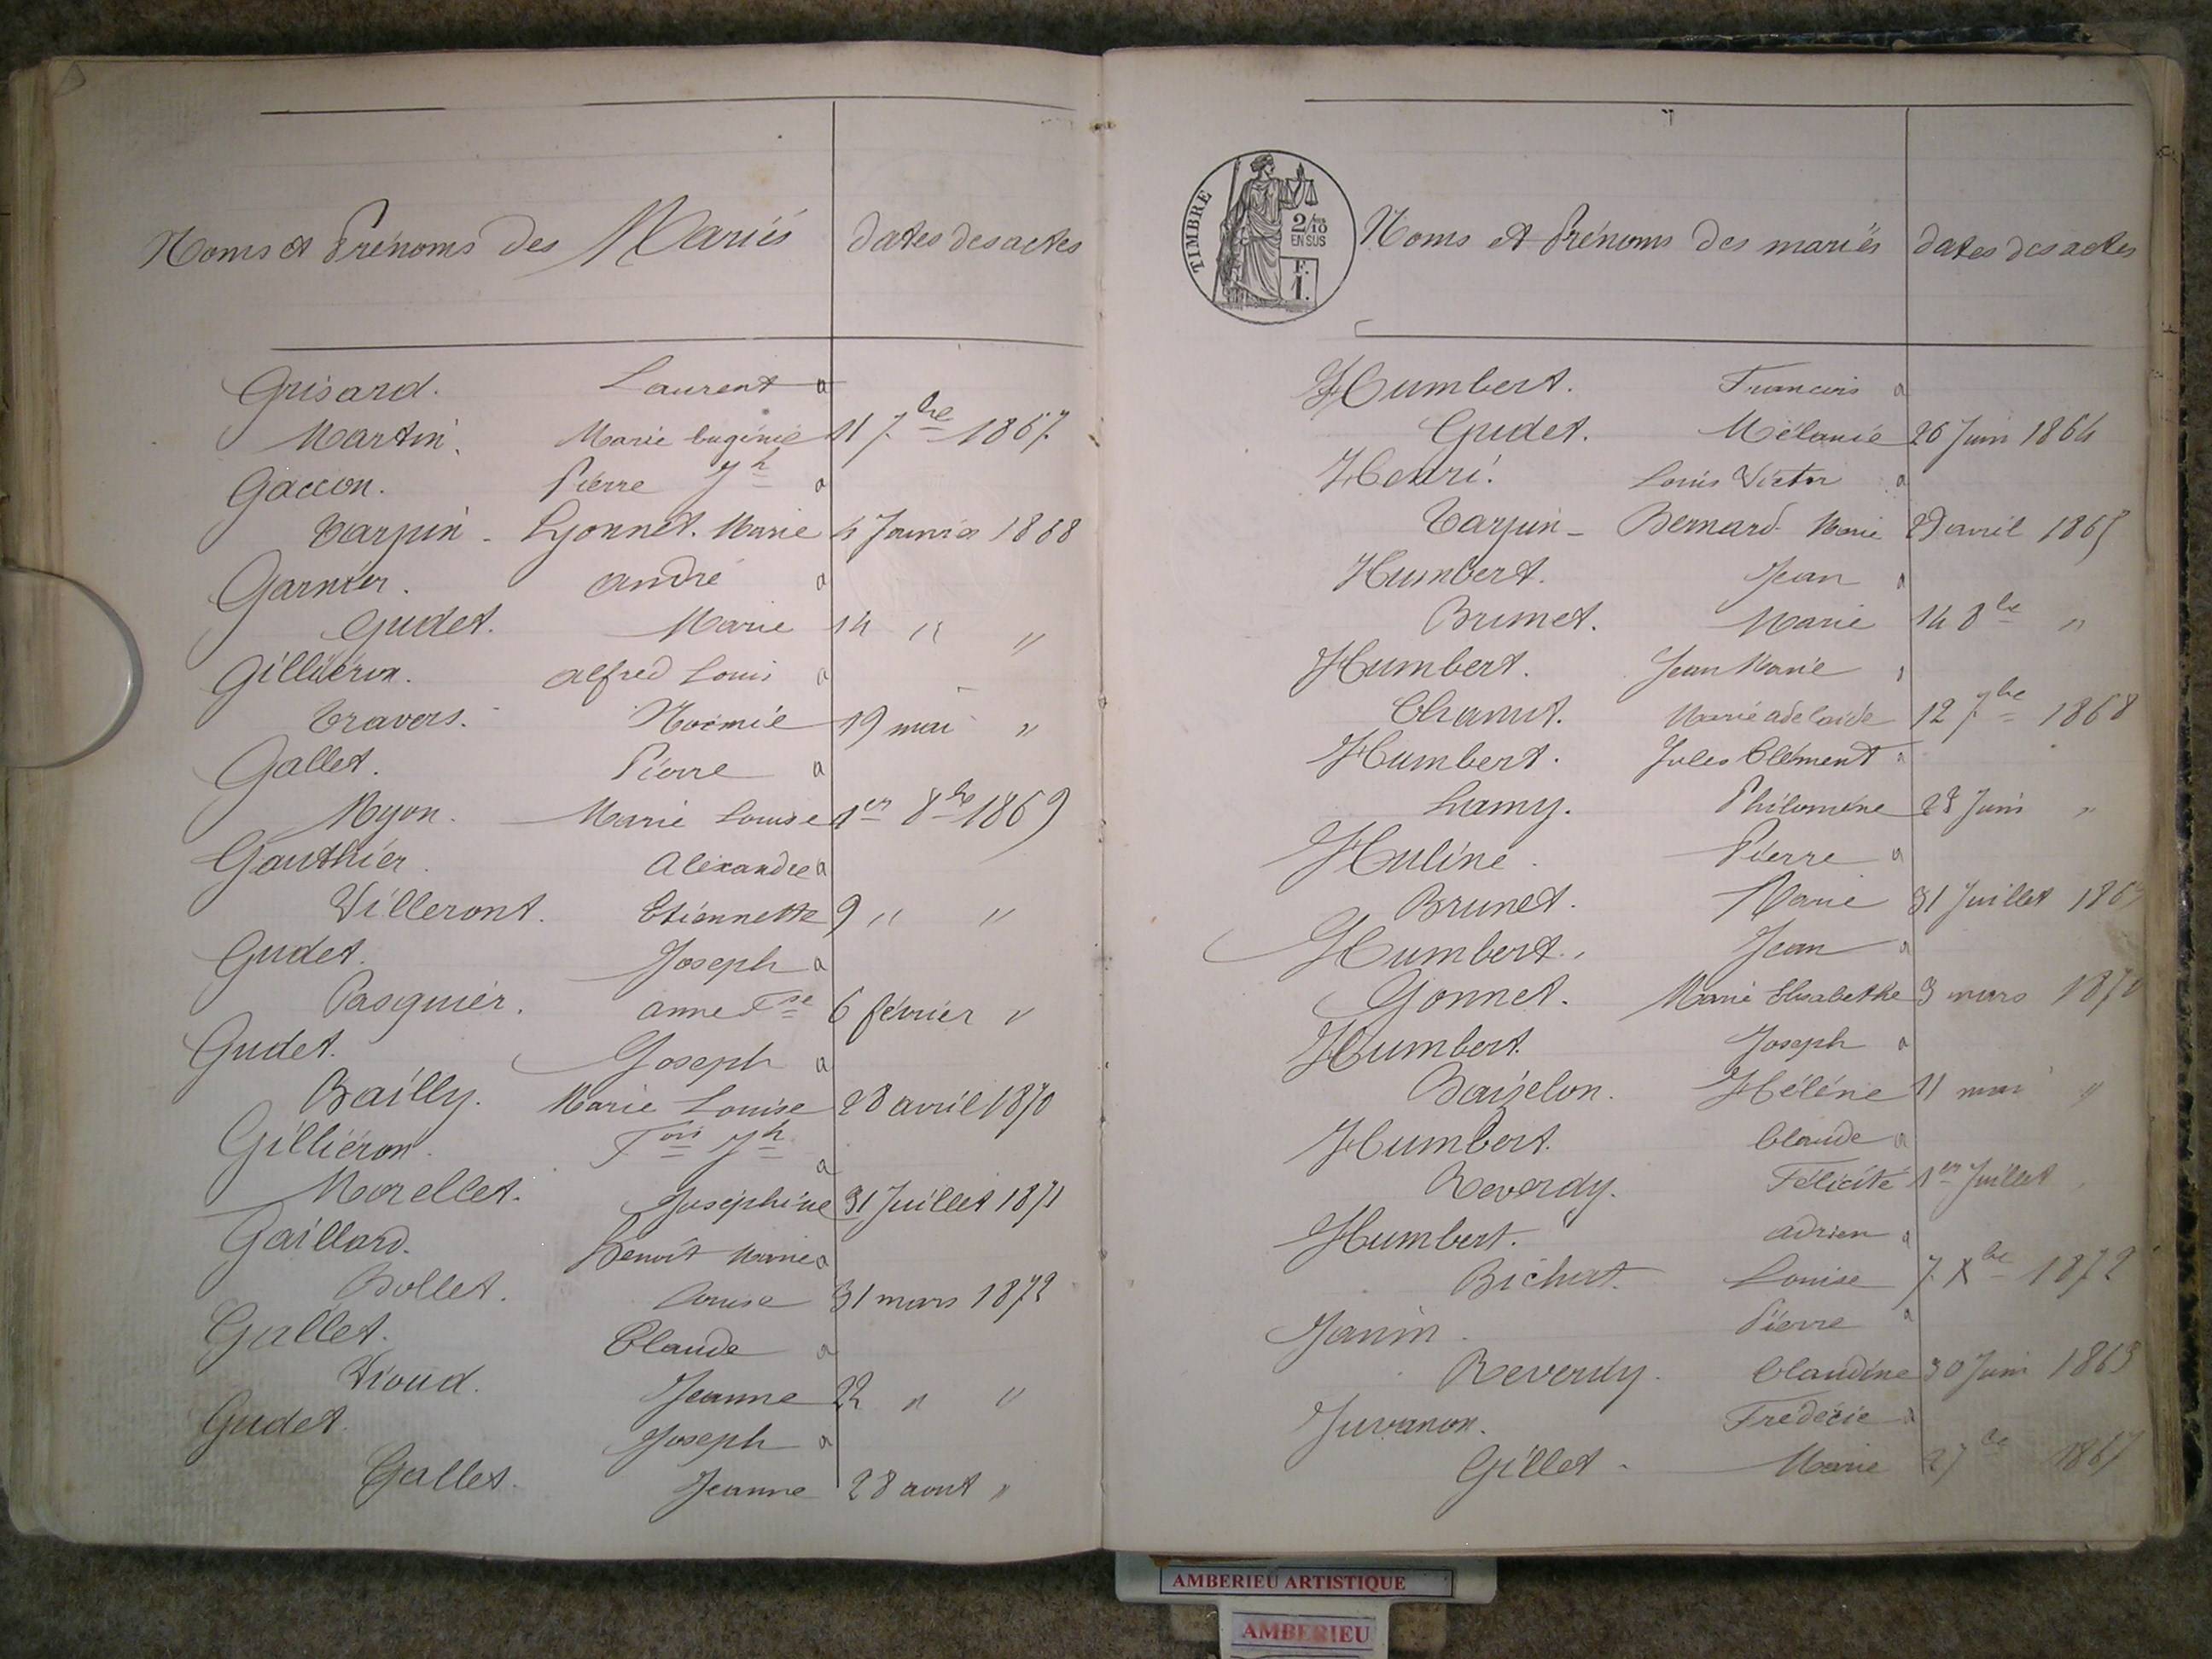 Noms et Prénoms des Mariés dates des actes
Grisard. Laurent a
Martin. Marie Eugénie 11 7bre 1867.
Gaccon. Pierre Jh a
Tarpin - Lyonnet. Marie 4 Janvier 1868
Garnier. André a
Gudet. Marie 14 " "
Gilliéron. Alfred Louis a
Travers. Noémie 19 mai "
Gallet. Pierre a
Myon. Marie Louise 1er 8bre 1869
Gauthier. Alexandre a
Villeront. Etiennette 9 " "
Gudet. Joseph a
Pasquier. Anne Fse 6 février "
Gudet. Joseph a
Bailly. Marie Louise 28 avril 1870
Gilliéron. Fois Jh a
Morellet. Joséphine 31 Juillet 1871
Gaillard. Benoît Marie a
Bollet. Louise 31 mars 1872
Gallet. Claude a
Vioud. Jeanne 22 " "
Gudet. Joseph a
Gallet. Jeanne 28 aout "
TIMBRE
2/10
EN SUS
F.
1.
Noms et Prénoms des mariés dates des actes
Humbert. Francois a
Gudet. Mélanie 26 Juin 1864
Henri. Louis Victor a
Tarpin - Bernard Marie 29 avril 1865
Humbert. Jean a
Brunet. Marie 14 8bre "
Humbert. Jean Marie a
Chanut. Marie adelaïde 12 7bre 1868
Humbert. Jules Clément a
Lamy. Philomène 28 Juin "
Huline. Pierre a
Brunet. Marie 31 Juillet 1869
Humbert. Jean a
Gonnet. Marie Elisabethe 3 mars 1870
Humbert. Joseph a
Hélène 11 mai "
Humbert. Claude a
Reverdy. Félicité 1er Juillet "
Humbert. Adrien a
Bichat. Louise 7 Xbre 1872
Janin. Pierre a
Reverdy. Claudine 30 Juin 1863
Juvanon. Frédéric a
Gillet - Marie 27
AMBERIEU ARTISTIQUE
AMBERIEU